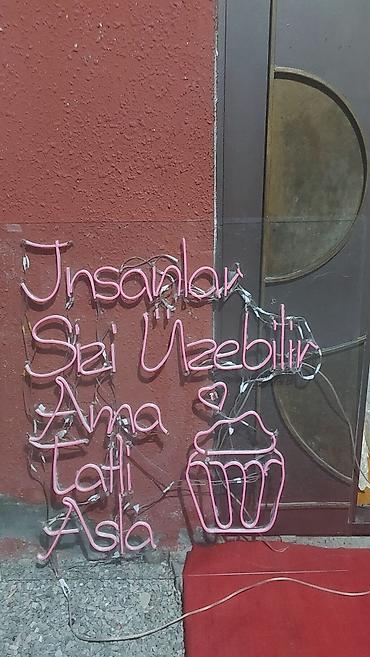 İnsanlar
Sizi Üzebilir
Ama
Tatlı
Asla